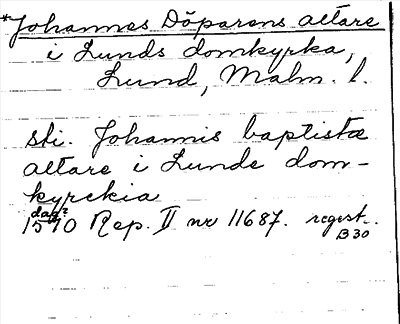 *Johannes Döparens altare
i Lunds domkyrka,
Lund, Malm. l.
sti. Johannis baptistæ
altare i Lunde dom-
kyrckia
dag?
1510 Rep. II nr 11687. regest.
B30